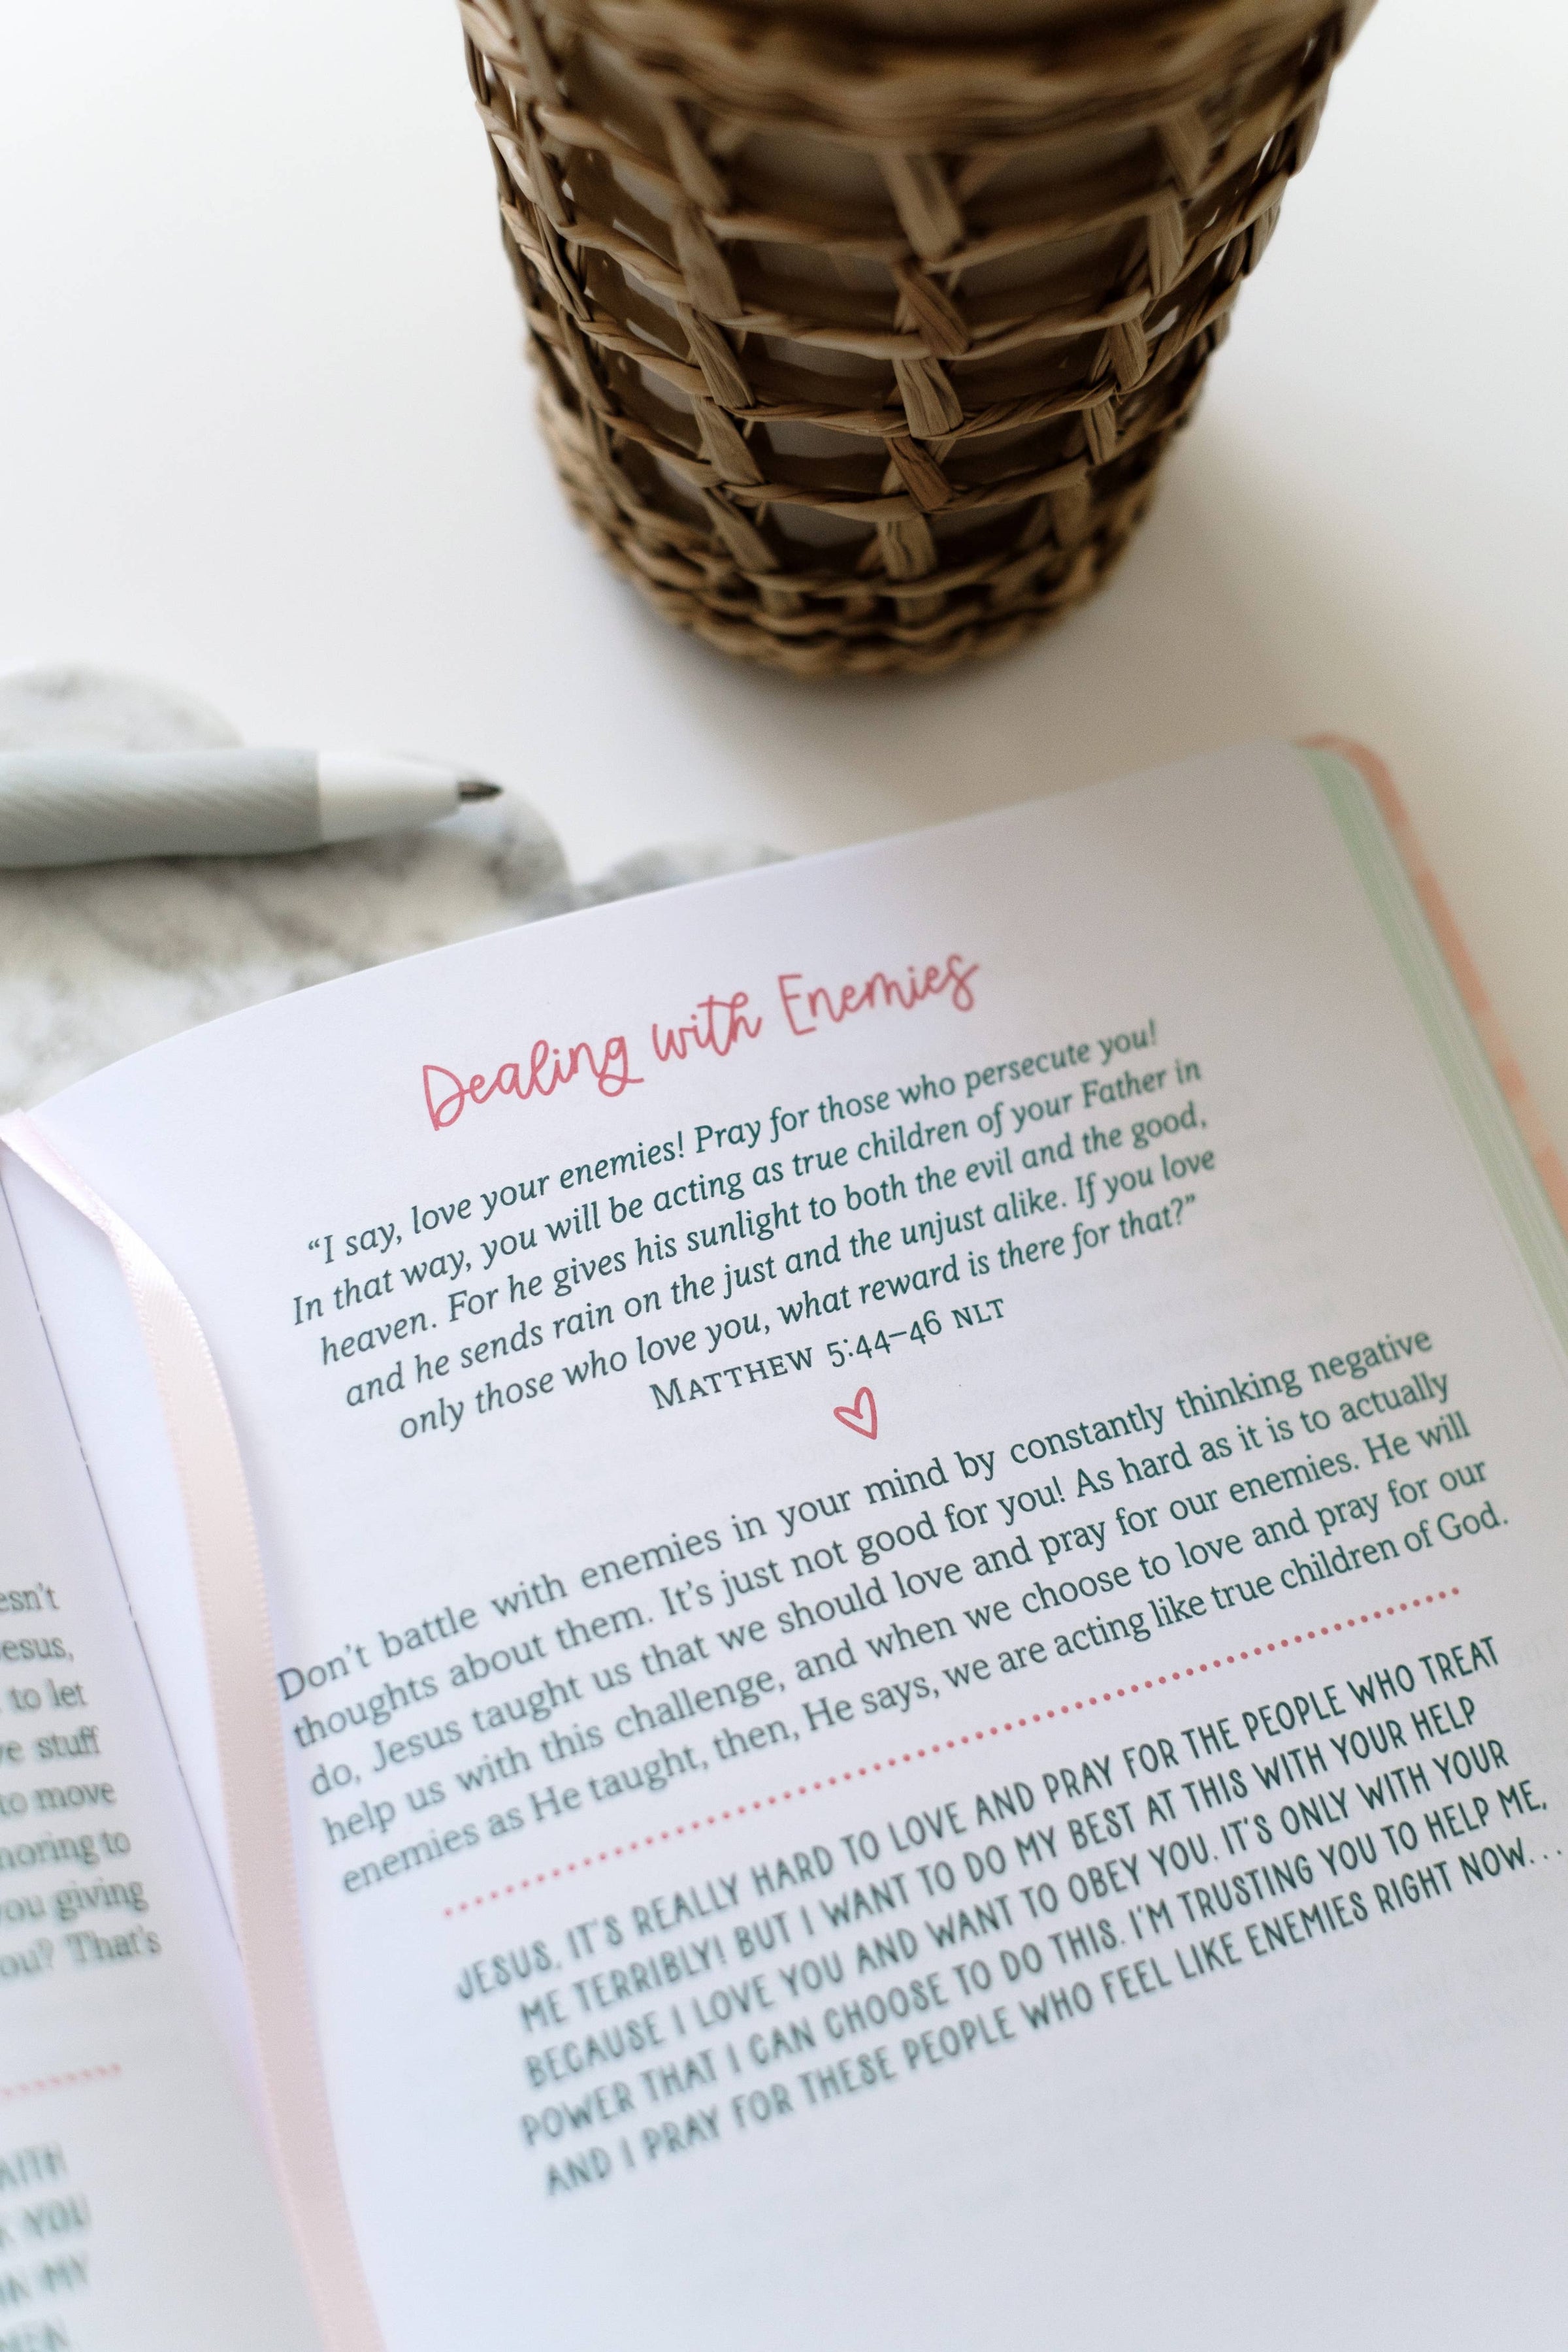 esn't
esus,
to let
ve stuff
to move
noring to
ou giving
ou? That's
AITH
YOU
MY
Dealing with Enemies
“I say, love your enemies! Pray for those who persecute you!
In that way, you will be acting as true children of your Father in
heaven. For he gives his sunlight to both the evil and the good,
and he sends rain on the just and the unjust alike. If you love
only those who love you, what reward is there for that?”
Matthew 5:44–46 NLT
Don't battle with enemies in your mind by constantly thinking negative
thoughts about them. It's just not good for you! As hard as it is to actually
do, Jesus taught us that we should love and pray for our enemies. He will
help us with this challenge, and when we choose to love and pray for our
enemies as He taught, then, He says, we are acting like true children of God.
JESUS, IT'S REALLY HARD TO LOVE AND PRAY FOR THE PEOPLE WHO TREAT
ME TERRIBLY! BUT I WANT TO DO MY BEST AT THIS WITH YOUR HELP
BECAUSE I LOVE YOU AND WANT TO OBEY YOU. IT'S ONLY WITH YOUR
POWER THAT I CAN CHOOSE TO DO THIS. I'M TRUSTING YOU TO HELP ME,
AND I PRAY FOR THESE PEOPLE WHO FEEL LIKE ENEMIES RIGHT NOW. . .